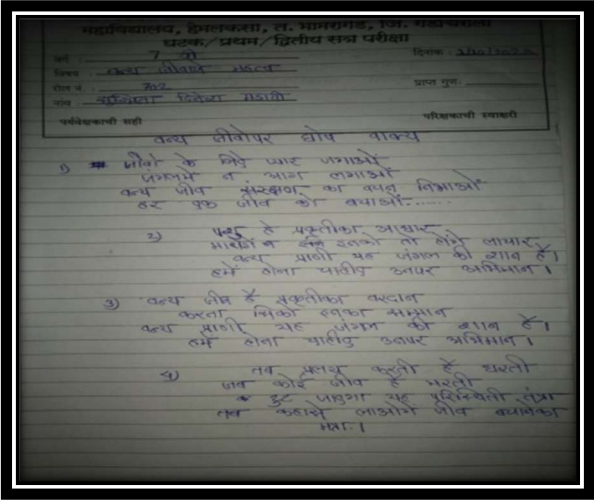 महाविद्यालय, हेमलकसा, त. भामरागड, जि. गडचिरोली
घटक/प्रथम/द्वितीय सत्र परीक्षा
वर्ग : 7 वी दिनांक :
विषय : वन्य जीवांचे महत्व
रोल नं. : 702 प्राप्त गुण
नाव : दिनेश
पर्यवेक्षकाची सही परिक्षकाची स्वाक्षरी
वन्य जीवोपर घोष वाक्य
1) जीवो के लिये प्यार जगाओं
जंगलमे न आग लगाओं
वन्य जीव संरक्षण का वचन निभाओं
हर एक जीव को बचाओं.......
2) पशु है प्रकृतीका आधार
इनको तो होंगे लाचार
वन्य प्राणी यह जंगल की शान है।
हमें होना चाहीए उनपर अभिमान।
3) वन्य जीव है प्रकृतीका वरदान
करना सिखो इनका सम्मान
वन्य प्राणी यह जंगल की शान है।
हमें होना चाहीए उनपर अभिमान।
4) तब प्रलय करती है धरती
जब कोई जीव है मरती
टुट जाएगा यह परिस्थिती तंत्र
तब कहासे लाओगे जीव बचानेका
मंत्र।